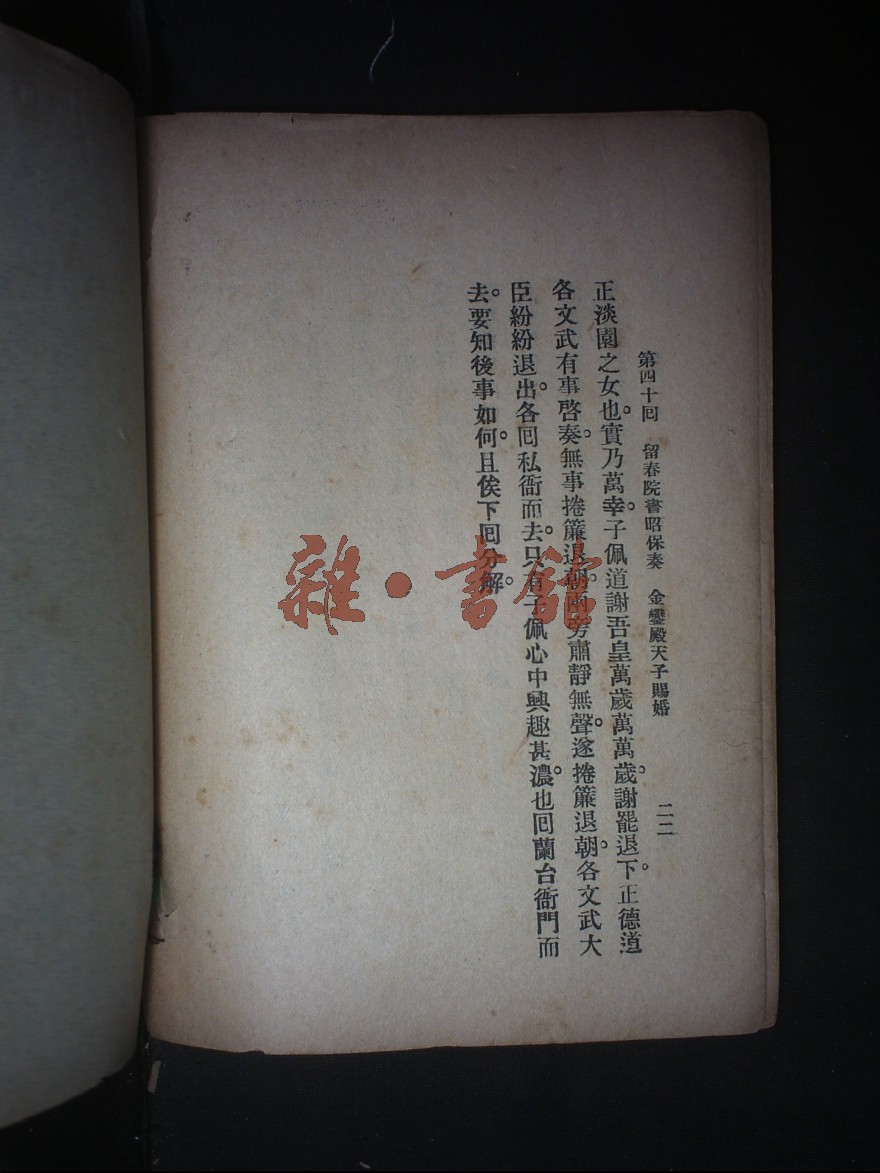 第四十回 留春院書昭保奏 金鑾殿天子賜婚 二二
正淡園之女也。實乃萬幸。子佩道謝吾皇萬歲萬萬歲。謝罷退下。正德道
各文武有事啓奏。無事捲簾退朝。兩旁肅靜無聲。遂捲簾退朝。各文武大
臣紛紛退出。各回私衙而去。只有子佩心中興趣甚濃。也回蘭台衙門而
去。要知後事如何。且俟下回分解。
雜·書館